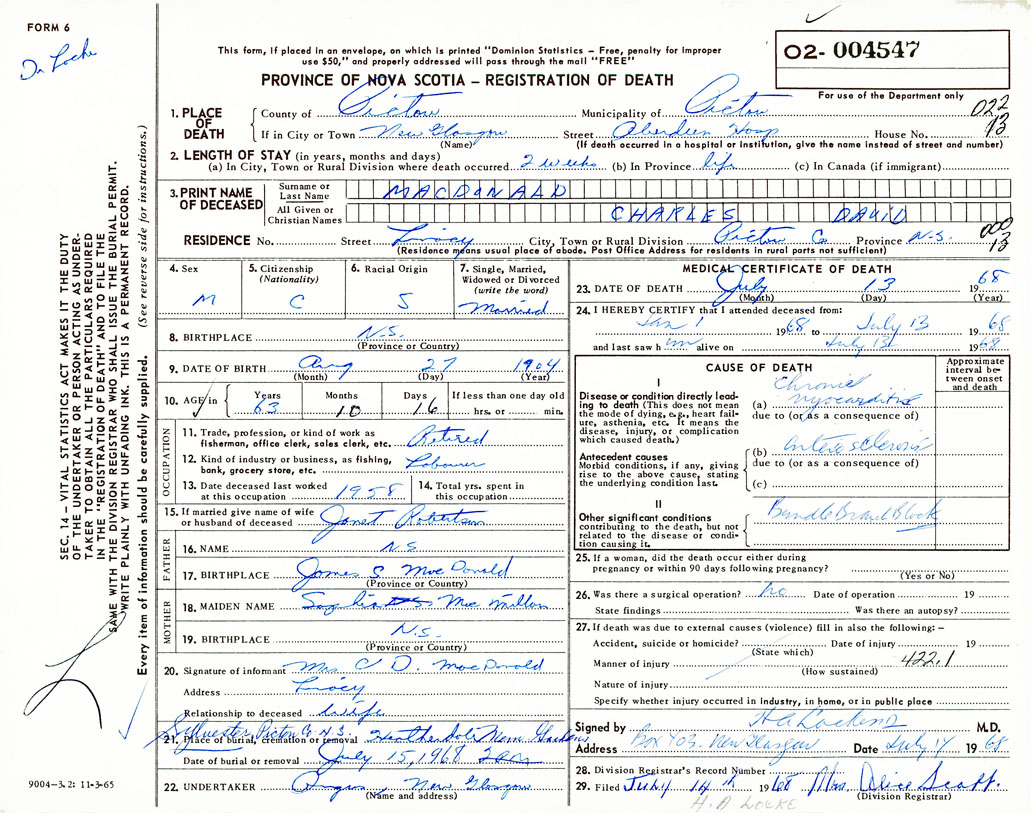 FORM 6
Dr Locke
This form, if placed in an envelope, on which is printed "Dominion Statistics – Free, penalty for improper
use $50," and properly addressed will pass through the mail "FREE"
O2- 004547
PROVINCE OF NOVA SCOTIA – REGISTRATION OF DEATH
For use of the Department only
1. PLACE OF DEATH
County of Pictou Municipality of Pictou 022
If in City or Town New Glasgow Street Aberdeen Hosp House No. 13
(Name) (If death occurred in a hospital or institution, give the name instead of street and number)
2. LENGTH OF STAY (in years, months and days)
(a) In City, Town or Rural Division where death occurred 2 weeks (b) In Province life (c) In Canada (if immigrant)
3. PRINT NAME OF DECEASED
Surname or Last Name MACDONALD
All Given or Christian Names CHARLES DAVID
RESIDENCE No. Street City, Town or Rural Division Pictou Co Province N.S. 000 13
(Residence means usual place of abode. Post Office Address for residents in rural parts not sufficient)
4. Sex M
5. Citizenship (Nationality) C
6. Racial Origin S
7. Single, Married, Widowed or Divorced (write the word) Married
8. BIRTHPLACE N.S.
(Province or Country)
9. DATE OF BIRTH Aug 27 1904
(Month) (Day) (Year)
10. AGE in Years 63 Months 10 Days 16 If less than one day old hrs. or min.
OCCUPATION
11. Trade, profession, or kind of work as fisherman, office clerk, sales clerk, etc. Retired
12. Kind of industry or business, as fishing, bank, grocery store, etc. Labourer
13. Date deceased last worked at this occupation 1958
14. Total yrs. spent in this occupation
15. If married give name of wife or husband of deceased Janet Robertson
FATHER
16. NAME N.S
17. BIRTHPLACE James S MacDonald
(Province or Country)
MOTHER
18. MAIDEN NAME Sophia Mac Millan
19. BIRTHPLACE N.S.
(Province or Country)
20. Signature of informant Mrs C D. MacDonald
Address
Relationship to deceased wife
Sylvester Pictou Co N.S.
21. Place of burial, cremation or removal
Date of burial or removal July 15, 1968
22. UNDERTAKER Angus, New Glasgow
(Name and address)
MEDICAL CERTIFICATE OF DEATH
23. DATE OF DEATH July 13 1968
(Month) (Day) (Year)
24. I HEREBY CERTIFY that I attended deceased from:
Jan 1 1968 to July 13 1968
and last saw him alive on July 13 1968
CAUSE OF DEATH
Approximate interval between onset and death
I
Disease or condition directly leading to death (This does not mean the mode of dying, e.g., heart failure, asthenia, etc. It means the disease, injury, or complication which caused death.)
(a) Chronic Myocarditis
due to (or as a consequence of)
Antecedent causes
Morbid conditions, if any, giving rise to the above cause, stating the underlying condition last.
(b) arteriosclerosis
due to (or as a consequence of)
(c)
II
Other significant conditions contributing to the death, but not related to the disease or condition causing it.
Bundle Branch Block
25. If a woman, did the death occur either during pregnancy or within 90 days following pregnancy?
(Yes or No)
26. Was there a surgical operation? No Date of operation 19
State findings Was there an autopsy?
27. If death was due to external causes (violence) fill in also the following: –
Accident, suicide or homicide? Date of injury 19
(State which)
Manner of injury 422.1
(How sustained)
Nature of injury
Specify whether injury occurred in industry, in home, or in public place
Signed by H A Locke M.D.
Address Box 403 New Glasgow Date July 14 1968
28. Division Registrar's Record Number
29. Filed July 14th 1968 Mrs Alice Scott.
(Division Registrar)
H. A LOCKE
SEC. 14 – VITAL STATISTICS ACT MAKES IT THE DUTY
OF THE UNDERTAKER OR PERSON ACTING AS UNDER-
TAKER TO OBTAIN ALL THE PARTICULARS REQUIRED
IN THE "REGISTRATION OF DEATH" AND TO FILE THE
SAME WITH THE DIVISION REGISTRAR WHO SHALL ISSUE THE BURIAL PERMIT.
WRITE PLAINLY WITH UNFADING INK. THIS IS A PERMANENT RECORD.
Every item of information should be carefully supplied. (See reverse side for instructions.)
9004–3.2: 11-3-65